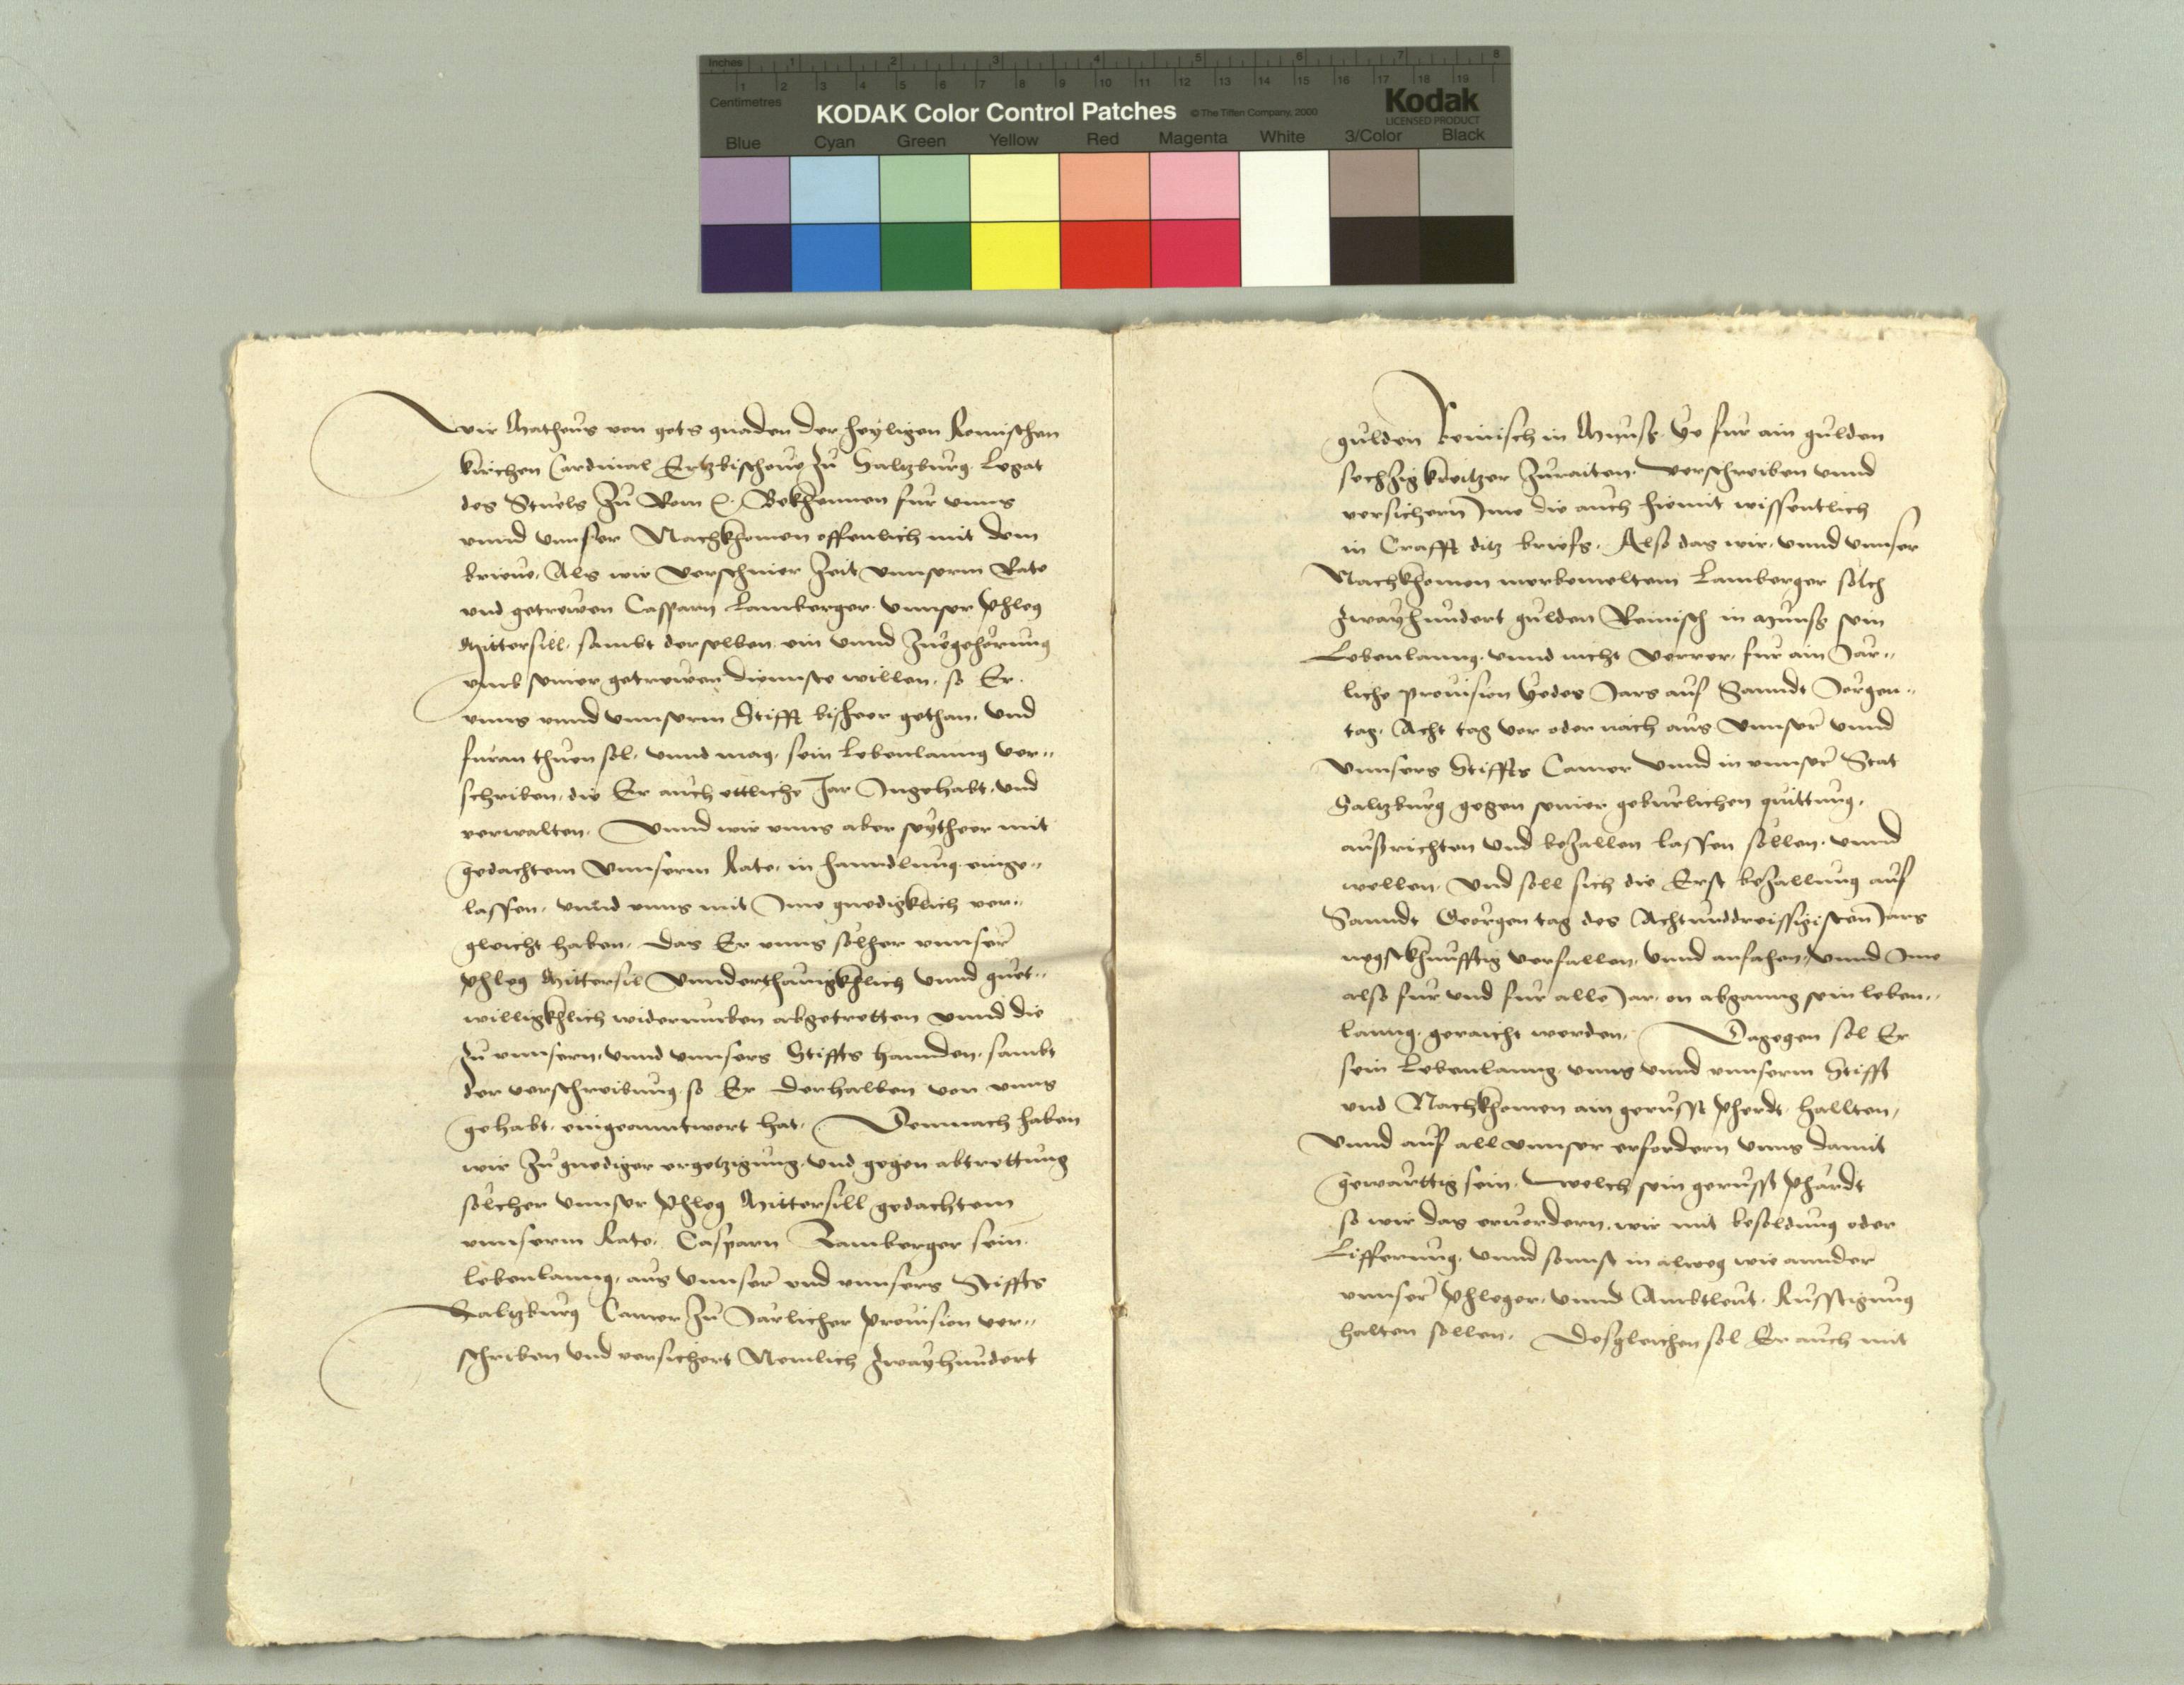 Inches 1 2 3 4 5 6 7 8
1 2 3 4 5 6 7 8 9 10 11 12 13 14 15 16 17 18 19
Centimetres
KODAK Color Control Patches © The Tiffen Company, 2000 Kodak
LICENSED PRODUCT
Blue Cyan Green Yellow Red Magenta White 3/Color Black
Wir Matheus von gots gnaden der heyligen Romischen
kirchen Cardinal Ertzbischove zu Saltzburg Legat
des Stuels zu Rom Bekhennen fur unns
unnd unnser Nachkhomen offenlich mit dem
brieve, Als wir verschiner zeit unnserm Rate
und getrewen Casparn Lamberger unnser phleg
Mittersill, sambt derselben ein unnd zuegehörung
umb seiner getrewen diennste willen, so Er
unns unnd unnserm Stifft bisheer gethan, und
furan thuen sol, unnd mag, sein Lebenlanng ver„
schriben, die Er auch ettliche Jar Ingehabt, und
verwalten, Unnd wir unns aber seytheer mit
gedachtem unnserm Rate, in hanndlung einge„
lassen, unnd unns mit Ime gnedigklich ver„
gleicht haben, das Er unns solher unnser
phleg Mittersil unnderthanigkhlich unnd guet„
willigkhlich widerumben abgetretten unnd die
zu unnsern, unnd unnsers Stiffts hannden, sambt
der verschreibung so Er derhalben von unns
gehabt, eingeanntwort hat, Demnach haben
wir zu gnediger ergetzigung, und gegen abtrettung
solcher unnser phleg Mittersill gedachtem
unnserm Rate, Casparn Lamberger sein
lebenlanng, aus unnser und unnsers Stiffts
Saltzburg Camer zu Jarlicher provision ver„
schriben und versichert Nemlich zwayhundert
gulden Reinisch in Munss, ye fur ain gulden
sechzig kreitzer zuraiten, verschreiben unnd
versichern Ime die auch hiemit wissentlich
in Crafft ditz briefs, Also das wir, unnd unnser
Nachkhomen merbemeltem Lamberger solch
zwayhundert gulden Reinisch in munss sein
Lebenlanng, unnd nicht verrer, fur ain Jar„
liche provision yedes Jars auf Sanndt Jorgen„
tag, Acht tag vor oder nach aus unnser unnd
unnsers Stiffts Camer unnd in unnser Stat
Saltzburg gegen seiner geburlichen quittung,
aussrichten und bezallen lassen sollen, unnd
wellen, Und soll sich die Erst bezallung auf
Sanndt Georgen tag des Achtunddreissigisten Jars
negstkhunfftig verfallen, unnd anfahen, unnd Ime
also fur und fur alle Jar, on abganng sein leben„
lanng, geraicht werden, Dagegen sol Er
sein Lebenlanng, unns unnd unnserm Stifft
und Nachkhomen ain gerusst pherdt, hallten,
Unnd auf all unnser erfordern unns damit
gewarttig sein, welch sein gerusst phardt
so wir das ervordern, wir mit besoldung oder
Lifferung, unnd sonnst in alweg wie annder
unnser phleger, unnd Ambtleut, Russtigung
halten sollen, Desgleichen sol Er auch mit